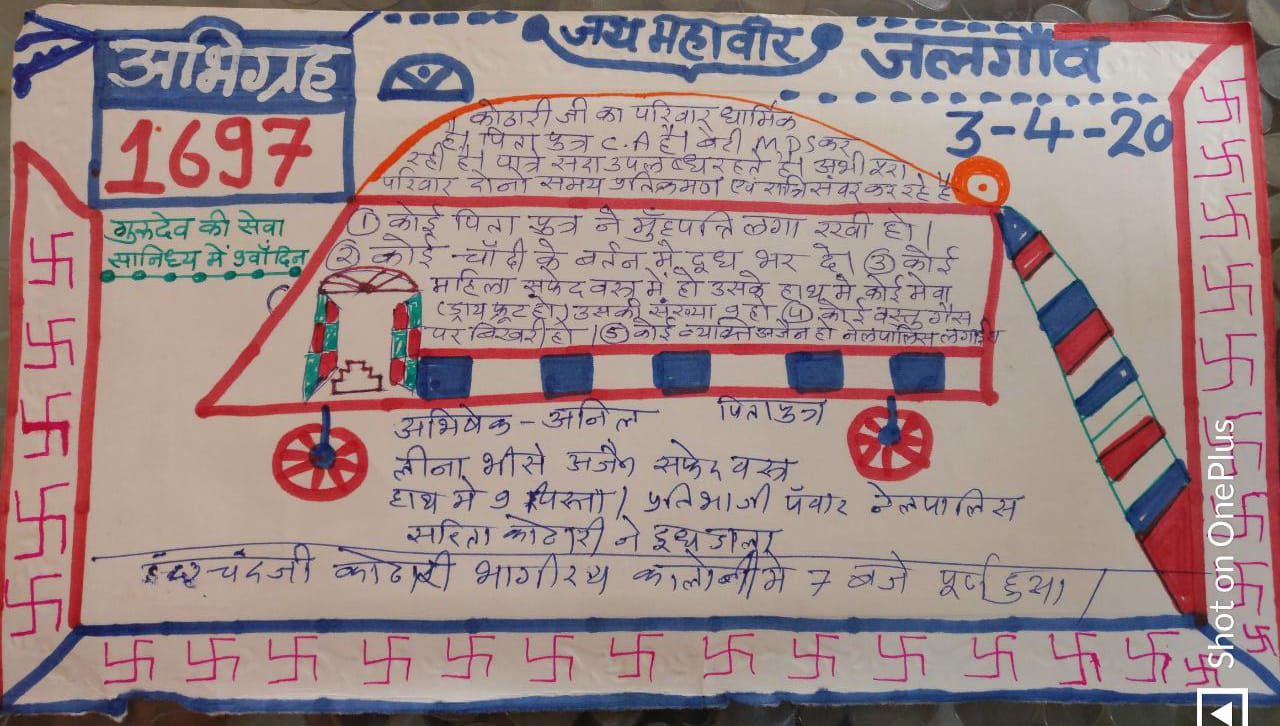 जय महावीर
अभिग्रह
1697
जलगाँव
3-4-20
कोठारी जी का परिवार धार्मिक
है। पिता पुत्र C.A है। बेटी M.D.S कर
रही है। पात्र सदा उपलब्ध रहते है। अभी
परिवार दोनो समय प्रतिक्रमण एवं रात्रि संवर कर रहे है
गुरुदेव की सेवा
सानिध्य में 9वाँ दिन
① कोई पिता पुत्र ने मुँहपत्ति लगा रखी हो।
② कोई चाँदी के बर्तन मे दूध भर दे। ③ कोई
महिला सफेद वस्त्र में हो उसके हाथ मे कोई मेवा
(ड्राय फ्रूट हो) उसकी संख्या 9 हो ④ कोई वस्तु गैस
पर बिखरी हो। ⑤ कोई व्यक्ति अजैन हो नेलपालिस लगाई
अभिषेक - अनिल पिता पुत्र
लीना भीसे अजैन सफेद वस्त्र
हाथ मे 9 पिस्ता। प्रतिभाजी पँवार नेलपालिस
सरिता कोठारी ने दूध डाला
चंदजी कोठारी भागीरथ कालोनी मे 7 बजे पूर्ण हुआ।
Shot on OnePlus